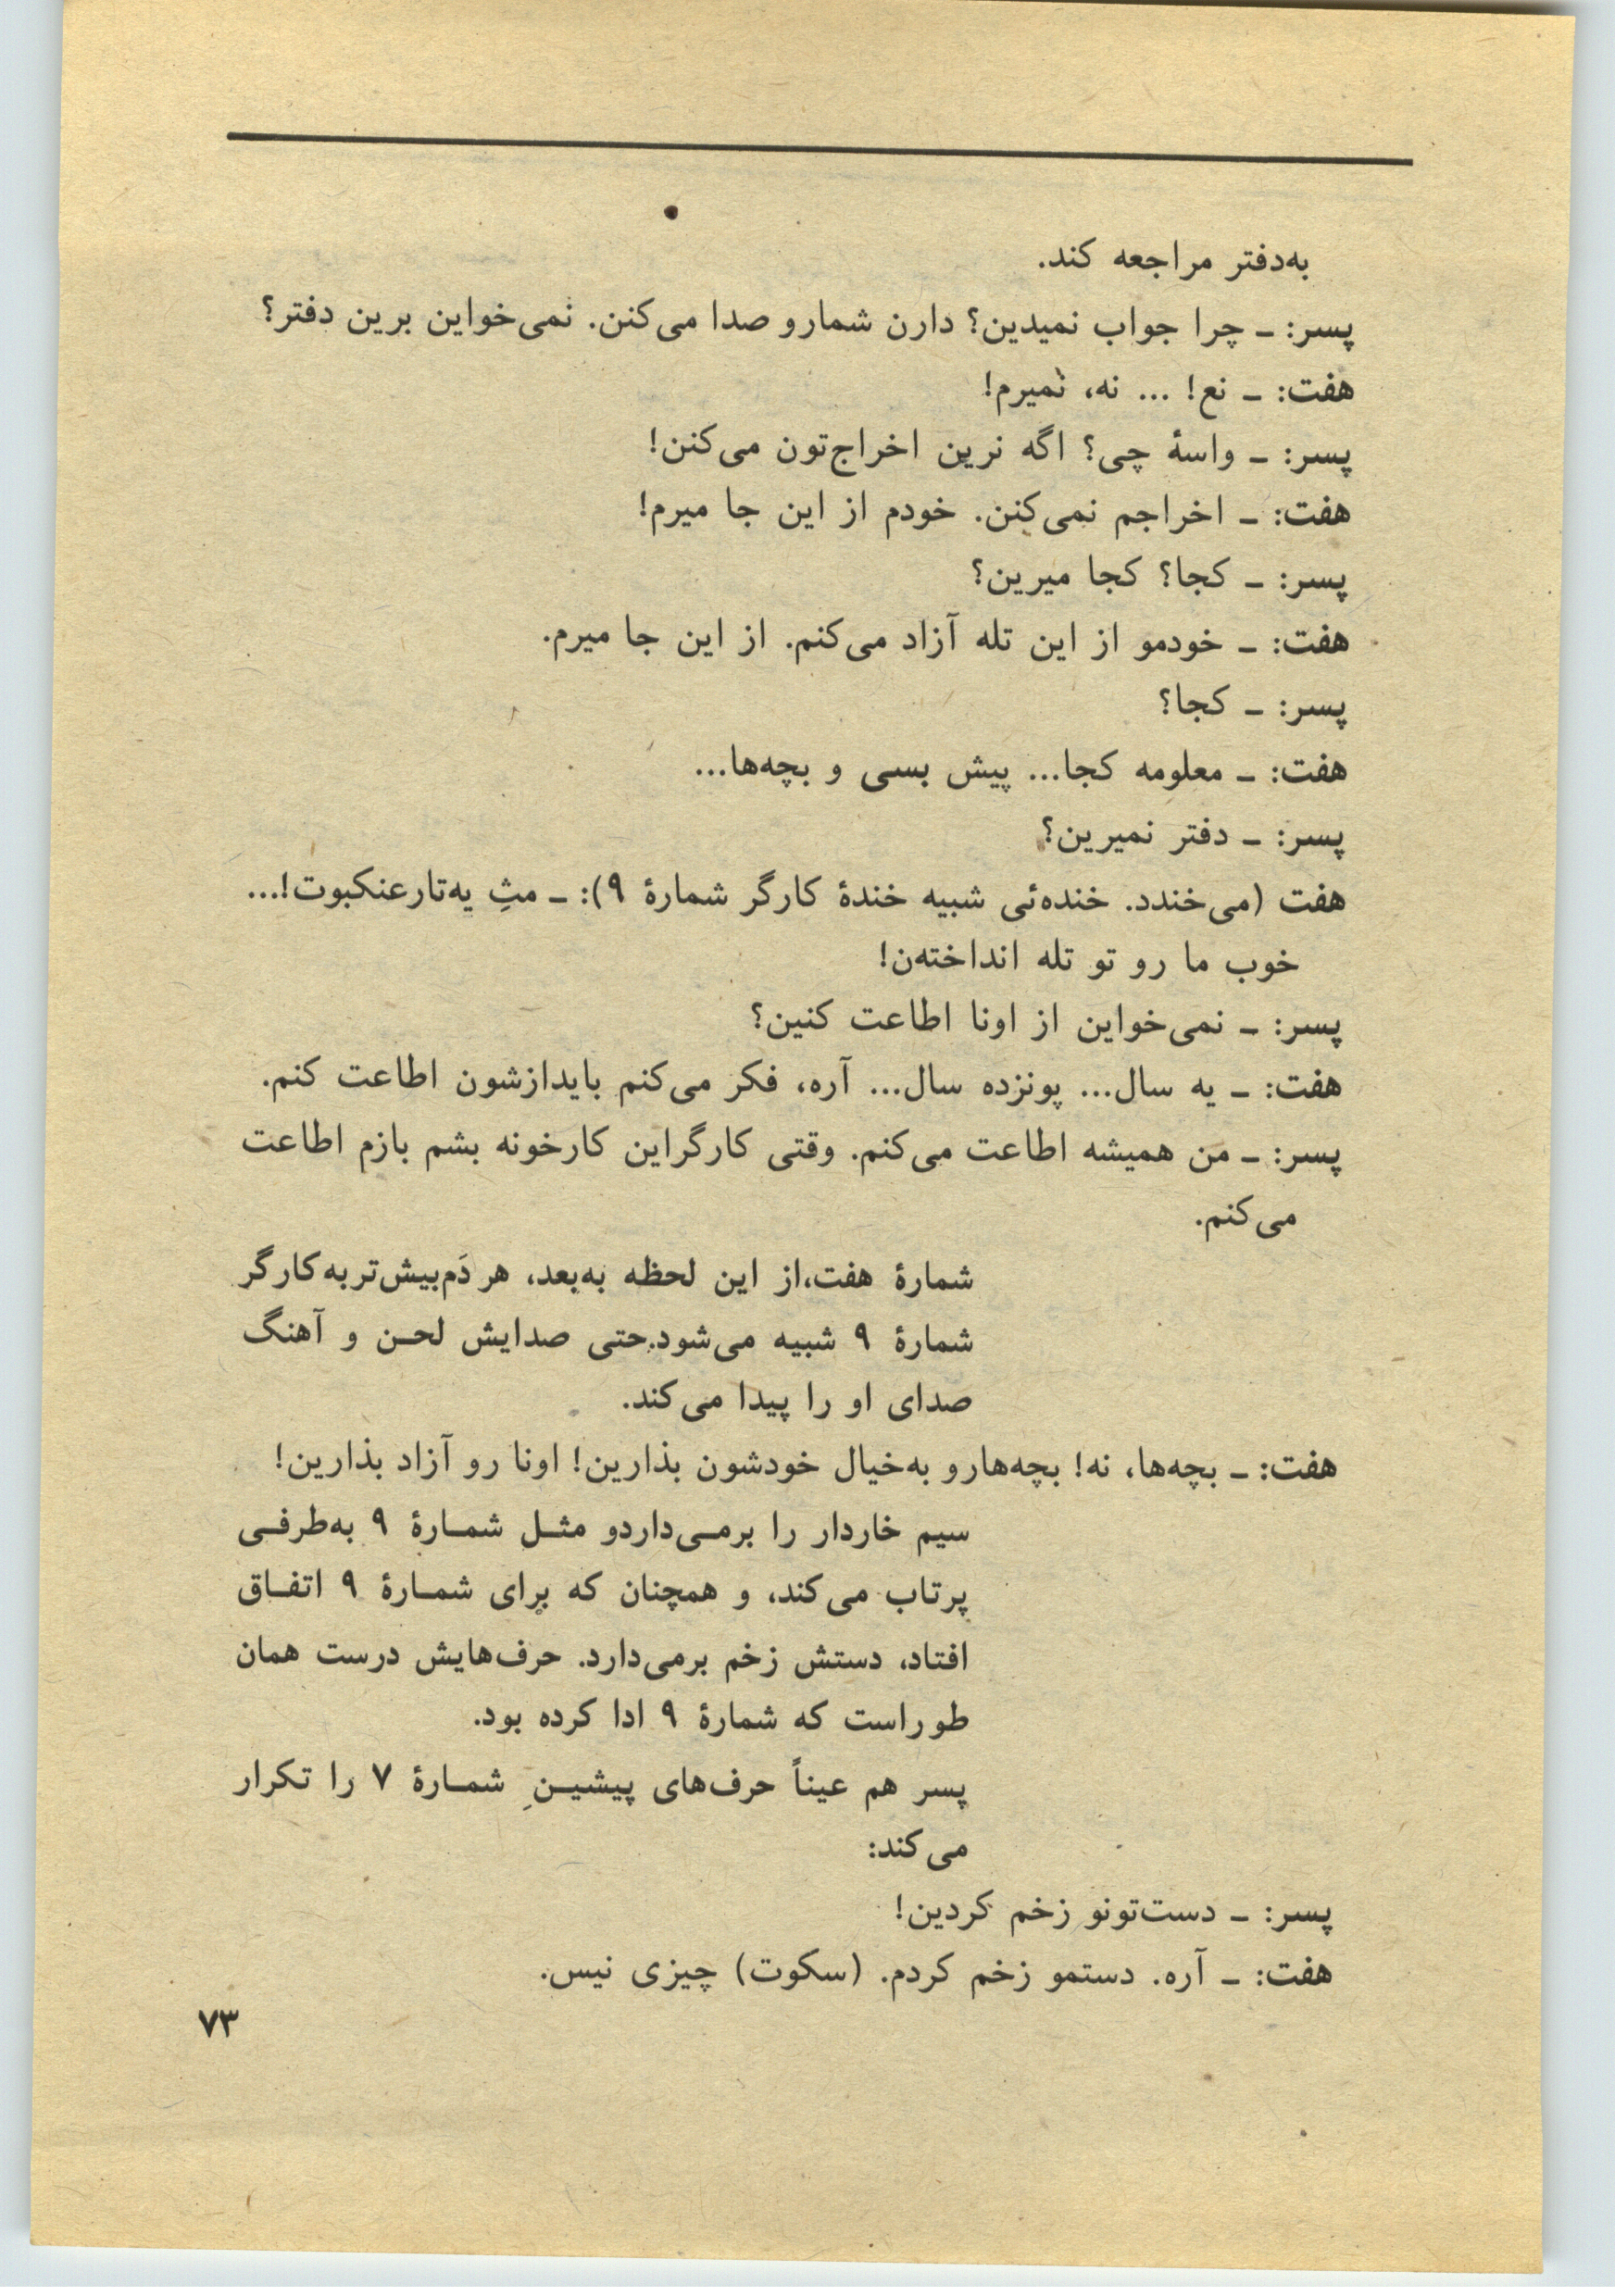 به‌دفتر مراجعه کند.
پسر: ـ چرا جواب نمیدین؟ دارن شمارو صدا می‌کنن. نمی‌خواین برین دفتر؟
هفت: ـ نع! ... نه، نمیرم!
پسر: ـ واسهٔ چی؟ اگه نرین اخراج‌تون می‌کنن!
هفت: ـ اخراجم نمی‌کنن. خودم از این جا میرم!
پسر: ـ کجا؟ کجا میرین؟
هفت: ـ خودمو از این تله آزاد می‌کنم. از این جا میرم.
پسر: ـ کجا؟
هفت: ـ معلومه کجا... پیش بسی و بچه‌ها...
پسر: ـ دفتر نمیرین؟
هفت (می‌خندد. خنده‌ئی شبیه خندهٔ کارگر شمارهٔ ۹): ـ مثِ یه‌تارعنکبوت!...
خوب ما رو تو تله انداخته‌ن!
پسر: ـ نمی‌خواین از اونا اطاعت کنین؟
هفت: ـ یه سال... پونزده سال... آره، فکر می‌کنم بایدازشون اطاعت کنم.
پسر: ـ من همیشه اطاعت می‌کنم. وقتی کارگراین کارخونه بشم بازم اطاعت
می‌کنم.
شمارهٔ هفت،از این لحظه به‌بعد، هر دَم‌بیش‌تربه‌کارگر
شمارهٔ ۹ شبیه می‌شود.حتی صدایش لحـن و آهنگ
صدای او را پیدا می‌کند.
هفت: ـ بچه‌ها، نه! بچه‌هارو به‌خیال خودشون بذارین! اونا رو آزاد بذارین!
سیم خاردار را برمـی‌داردو مثـل شمـارهٔ ۹ به‌طرفـی
پرتاب می‌کند، و همچنان که برای شمـارهٔ ۹ اتفـاق
افتاد، دستش زخم برمی‌دارد. حرف‌هایش درست همان
طوراست که شمارهٔ ۹ ادا کرده بود.
پسر هم عیناً حرف‌های پیشیـنِ شمـارهٔ ۷ را تکرار
می‌کند:
پسر: ـ دست‌تونو زخم کردین!
هفت: ـ آره. دستمو زخم کردم. (سکوت) چیزی نیس.
۷۳